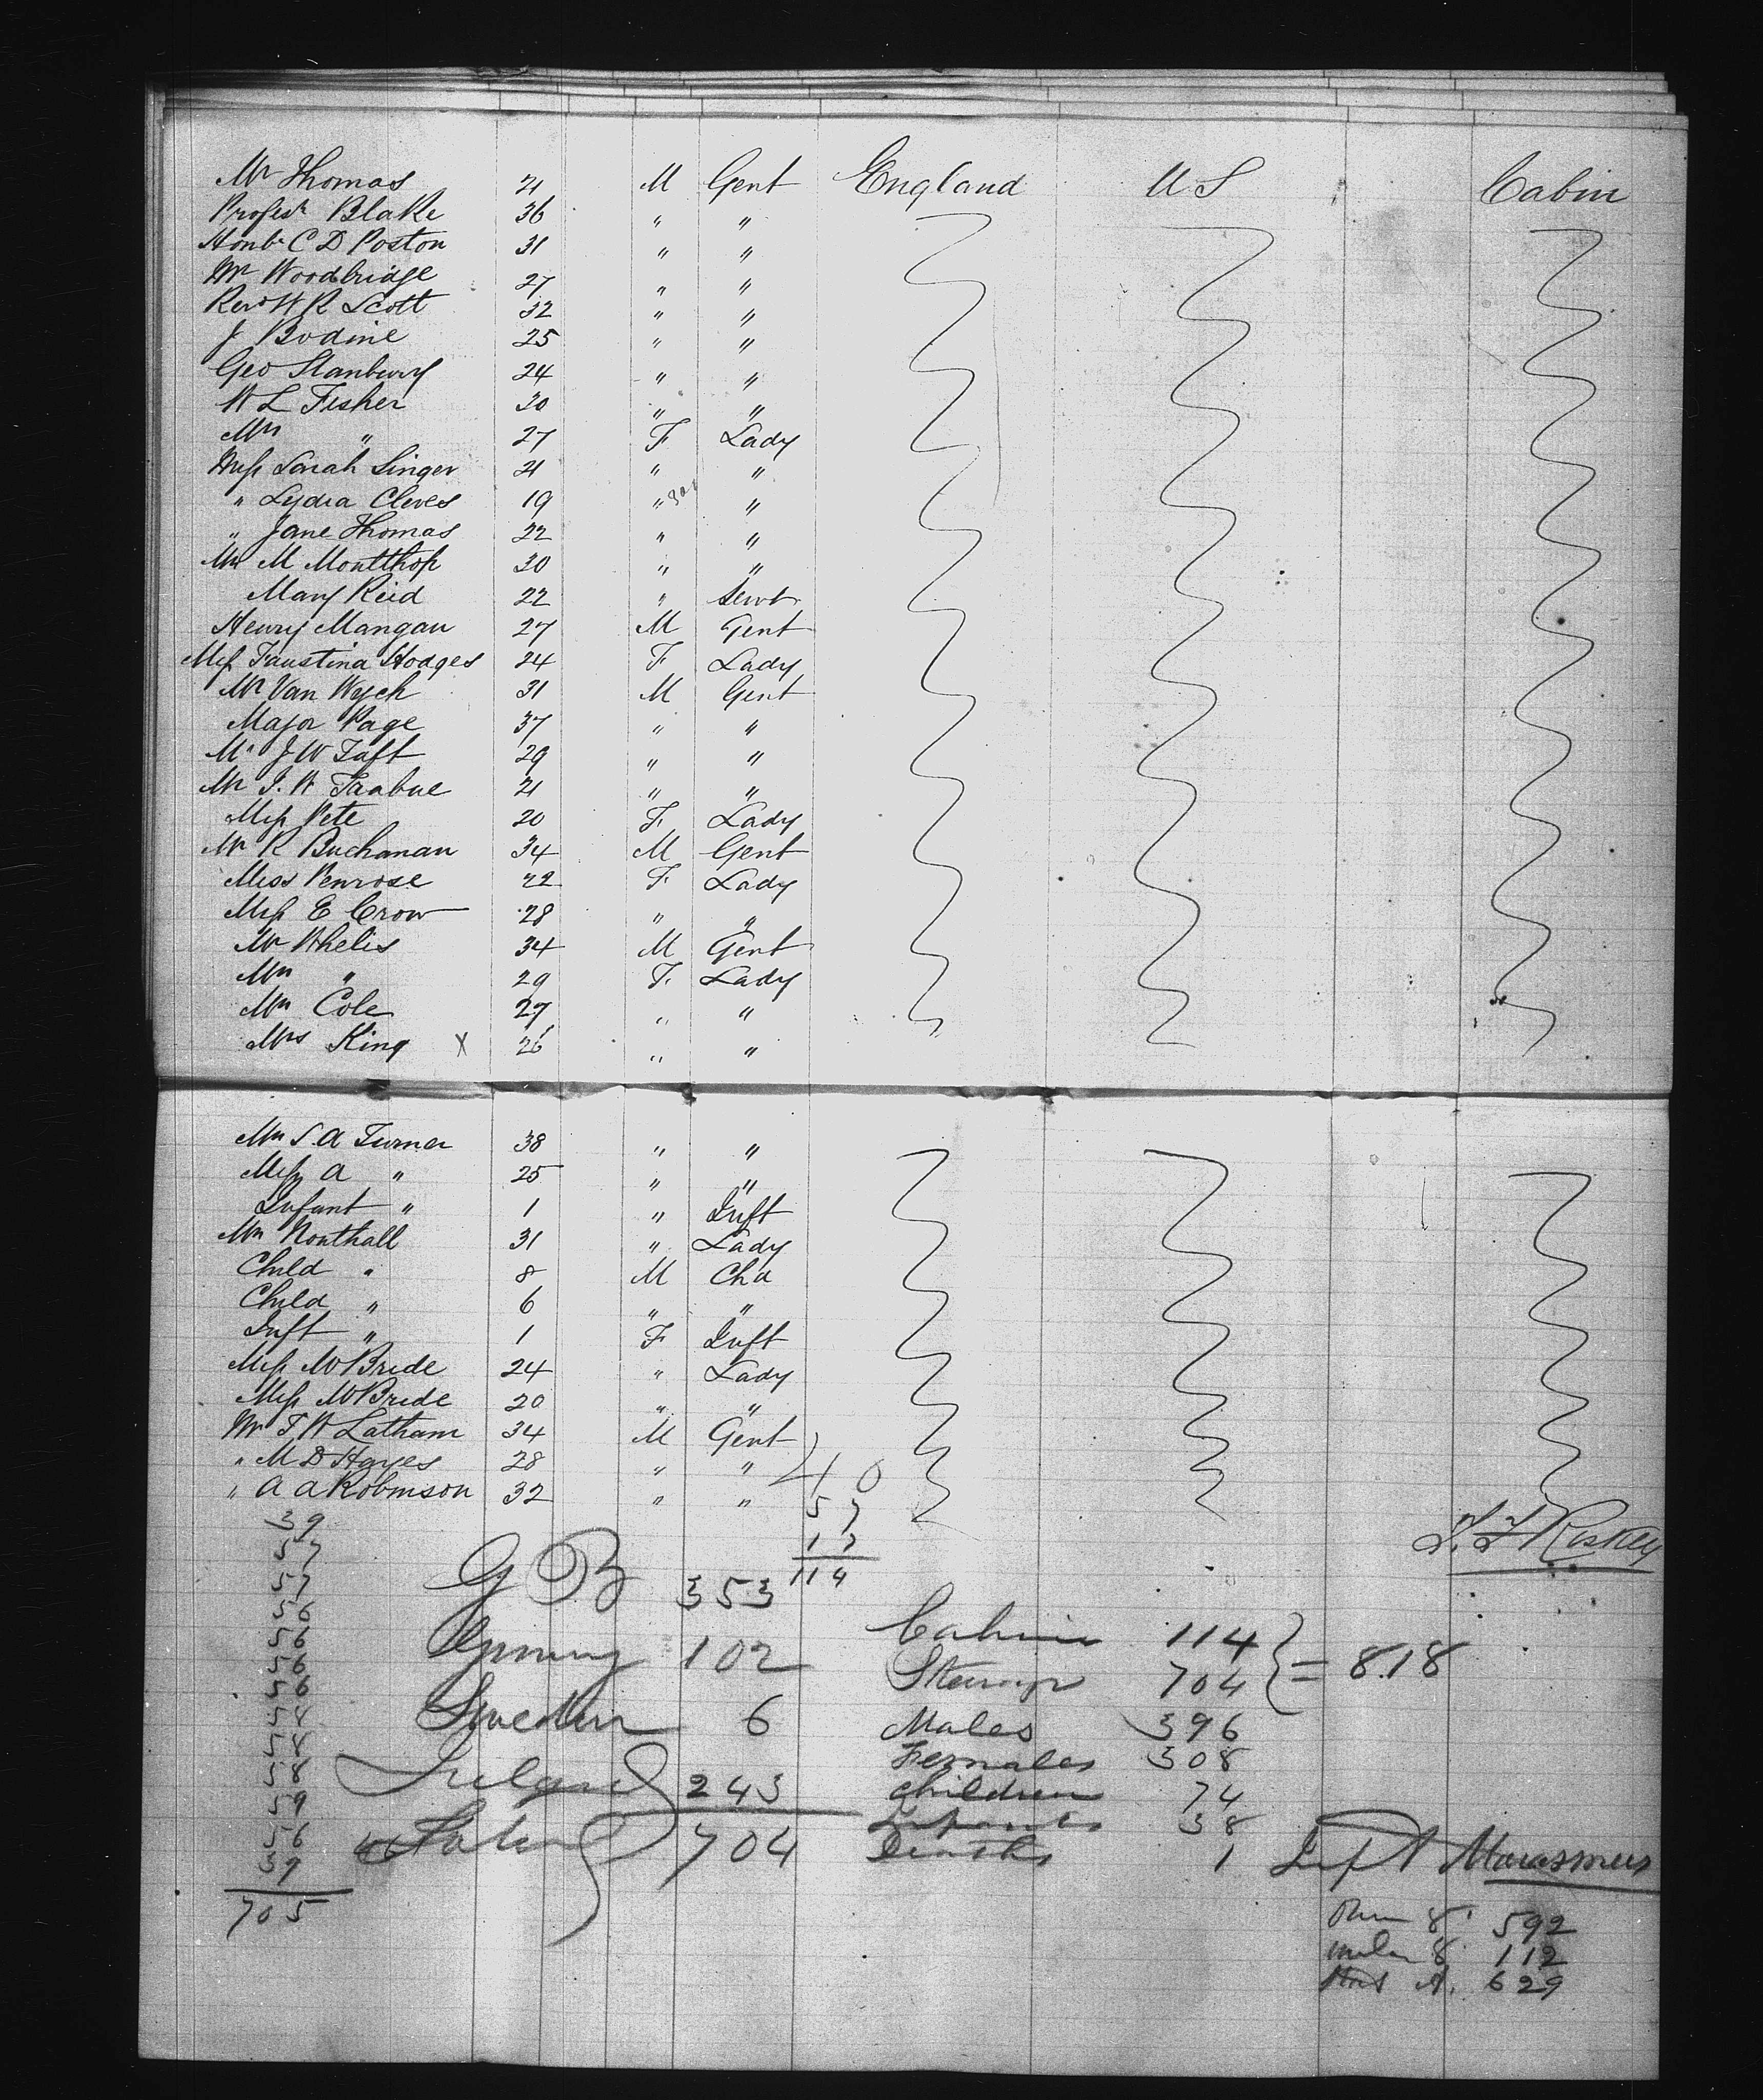 Mr Thomas 21 M Gent England U S Cabin
Profesr Blake 36 " "
Honbe C D Poston 31 " "
Mr Woodbridge 27 " "
Revd W R Scott 32 " "
J Bodine 25 " "
Geo Stanbury 24 " "
W L Fisher 30 " "
Mrs " 27 F Lady
Miss Sarah Singer 21 " "
" Lydia Cleves 19 " "
" Jane Thomas 22 " "
M Moultthop 30 " "
Mary Reid 22 " Servt
Henry Mangan 27 M Gent
Miss Faustina Hodges 24 F Lady
Mr Van Wych 31 M Gent
Major Page 37 " "
Mr J W Taft 29 " "
Mr J. W 21 " "
Miss Pete 20 F Lady
Mr R Buchanan 34 M Gent
Miss Penrose 22 F Lady
Miss E Crow 28 " "
Mr Whelis 34 M Gent
Mrs " 29 F. Lady
Mrs Cole 27 " "
Mrs King X 26 " "
Mrs S. A Turner 38 " "
Miss A " 25 " "
Infant " 1 " Inft
Mrs Northall 31 " Lady
Child " 8 M Chd
Child " 6 " "
Inft " 1 F Inft
Miss McBride 24 " Lady
Miss McBride 20 " "
Mr T. W Latham 34 M Gent
" M D Hayes 28 " " 40
" A A Robinson 32 " " 57
39
57
57
56
56
56
56
58
58
59
56
39
705
17
114
G B 353
Germany 102
Sweden 6
Ireland 243
Total 704
Cabin 114 } = 818
Steerage 704
Males 396
Females 308
Children 74
Infants 38
Deaths 1 Inft Marasmus
Over 8 592
under 8 112
A. 629